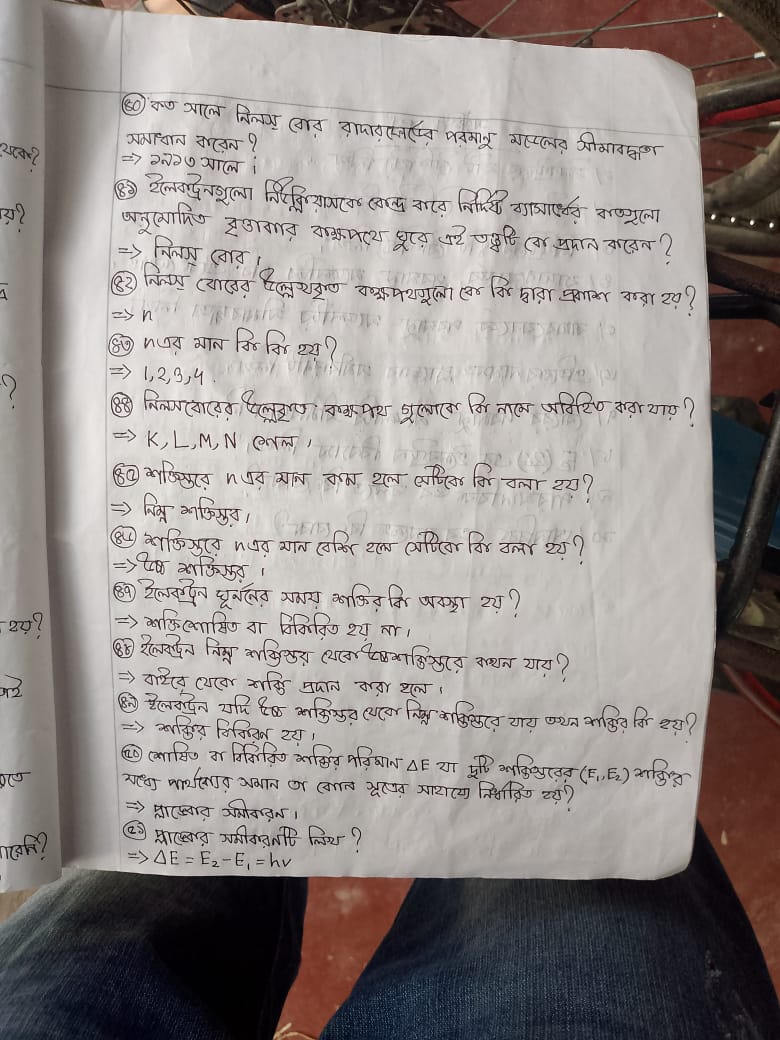 ৪০) কত সালে নিলস্ বোর রাদারফোর্ডের পরমানু মডেলের সীমাবদ্ধতা
সমাধান করেন?
=> ১৯১৩ সালে।
৪১) ইলেকট্রনগুলো নিউক্লিয়াসকে কেন্দ্র করে নির্দিষ্ট ব্যাসার্ধের কতগুলো
অনুমোদিত বৃত্তাকার কক্ষপথে ঘুরে এই তত্ত্বটি কে প্রদান করেন?
=> নিলস্ বোর।
৪২) নিলস্ বোরের উল্লেখকৃত কক্ষপথগুলো কে কি দ্বারা প্রকাশ করা হয়?
=> n
৪৩) n এর মান কি কি হয়?
=> 1,2,3,4.
৪৪) নিলসবোরের উল্লেকৃত কক্ষপথ গুলোকে কি নামে অবিহিত করা যায়?
=> K, L, M, N শেল।
৪৫) শক্তিস্তরে n এর মান কম হলে সেটিকে কি বলা হয়?
=> নিম্ন শক্তিস্তর।
৪৬) শক্তিস্তরে n এর মান বেশি হলে সেটিকে কি বলা হয়?
=> উচ্চ শক্তিস্তর।
৪৭) ইলেকট্রন ঘূর্ননের সময় শক্তির কি অবস্থা হয়?
=> শক্তিশোষিত বা বিকিরিত হয় না।
৪৮) ইলেকট্রন নিম্ন শক্তিস্তর থেকে উচ্চ শক্তিস্তরে কখন যায়?
=> বাইরে থেকে শক্তি প্রদান করা হলে।
৪৯) ইলেকট্রন যদি উচ্চ শক্তিস্তর থেকে নিম্ন শক্তিস্তরে যায় তখন শক্তির কি হয়?
=> শক্তির বিকিরন হয়।
৫০) শোষিত বা বিকিরিত শক্তির পরিমান ΔE যা দুটি শক্তিস্তরের (E₁, E₂) শক্তির
মধ্যে পার্থক্যের সমান তা কোন সূত্রের সাহায্যে নির্ধারিত হয়?
=> প্লাঙ্কের সমীকরন।
৫১) প্লাঙ্কের সমীকরনটি লিখ?
=> ΔE = E₂ – E₁ = hν
থেকে?
য়?
?
হয়?